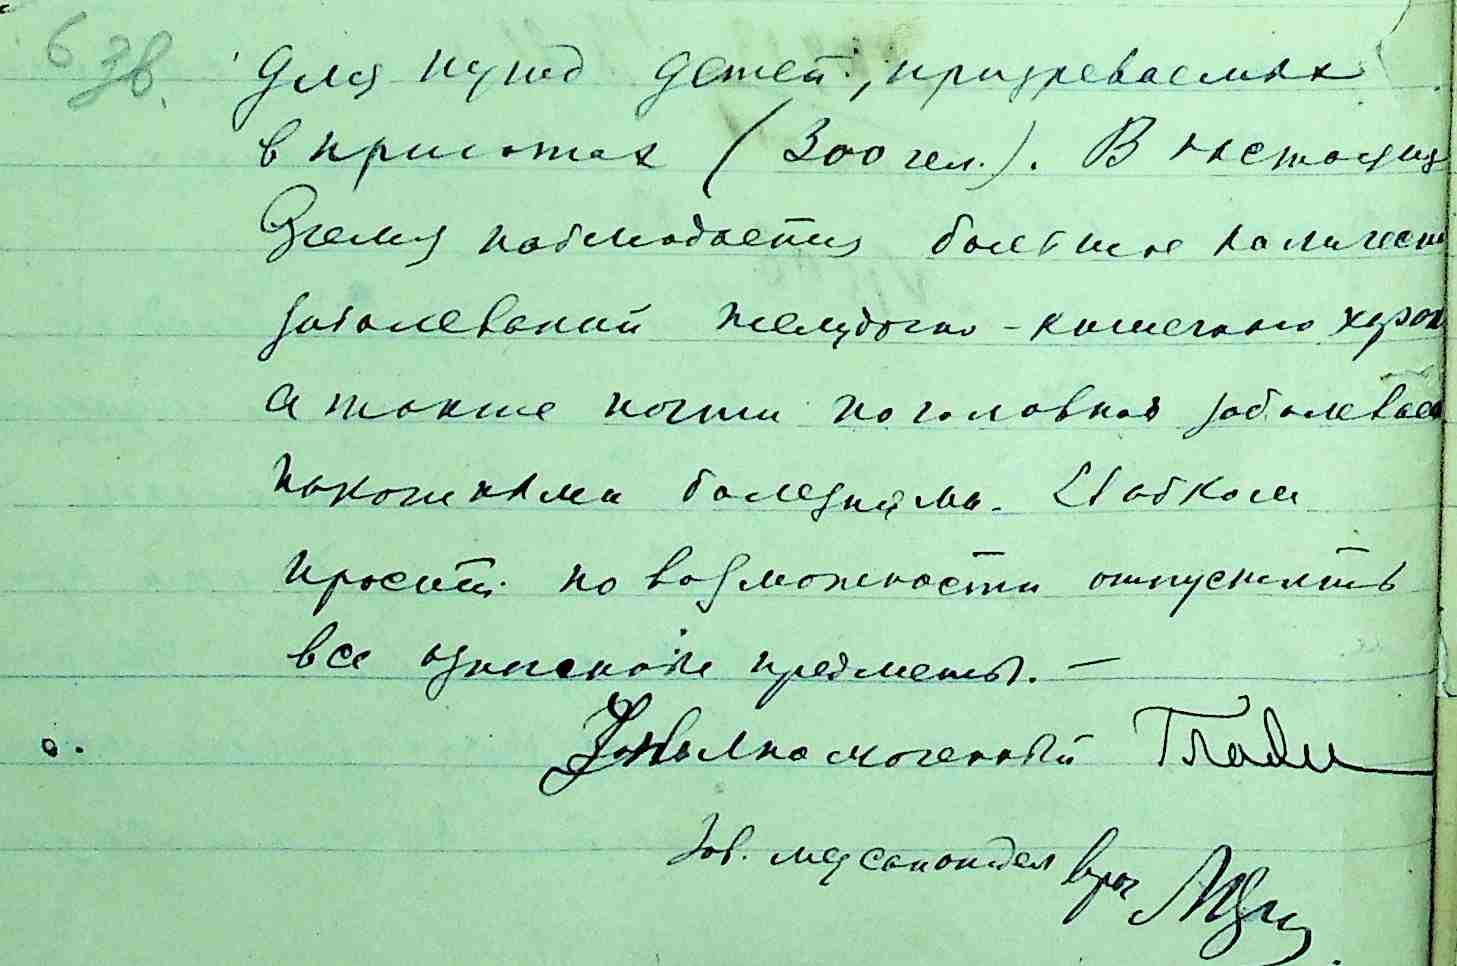 6 зв.
Для нужд детей, призреваемых
в приютах (300 чел.). В настоящее
время наблюдается большое количест
заболеваний желудочно-кишечного хара
а также почти поголовная заболевае
накожными болезнями.
просит по возможности отпустить
все означенные предметы. —
Уполномоченный
Зав. медсанотдел врач